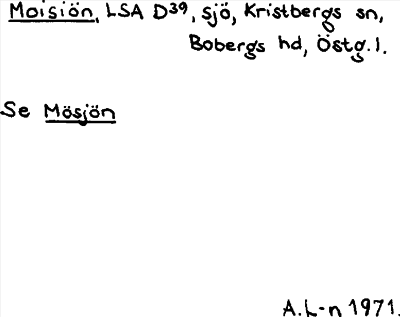 Moisiön, LSA D39, sjö, Kristbergs sn,
Bobergs hd, Östg.l.
Se Mösjön
A.L-n 1971.